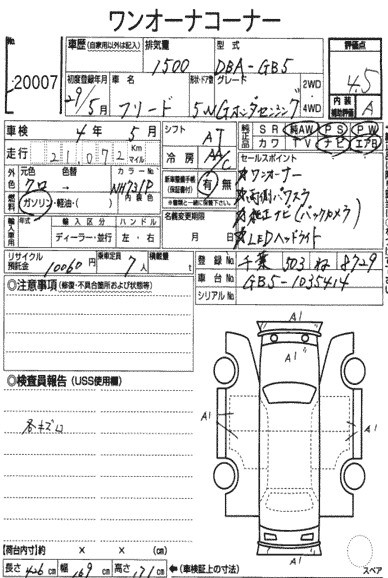 ワンオーナーコーナー
No. 20007
車歴 (自家用以外は記入) 排気量 1500 型式 DBA-GB5 評価点 4.5
初度登録年月 29/5月 車名 フリード 形状・ドア数 5W グレード Gホンダセンシング 2WD・4WD 内装補助評価 A
車検 4年 5月 シフト AT 純正品 SR 純AW PS PW
走行 21072 Km マイル 冷房 AAC カワ TV ナビ エアB
外色 元色 クロ 色替 カラーNo. NH731P 新車整備手帳(保証書付) 有・無
セールスポイント
★ワンオーナー
★両側パワスラ
★純正ナビ(バックカメラ)
★LEDヘッドライト
燃料 ガソリン・軽油・( ) (記入欄と一緒に保管下さい。)
輸入車用 輸入区分 ディーラー・並行 ハンドル 左・右 名義変更期限 月 日
リサイクル預託金 10060円 乗車定員 7人 積載量 t
登録No. 千葉 503 ね 8729
車台No. GB5-1035414
シリアルNo.
◎注意事項 (修復・不具合箇所および状態等)
◎検査員報告 (USS使用欄)
各キズ口
A1
A1
A1
A1
A1
A1
【荷台内寸】約 × × (cm)
長さ 426 cm 幅 169 cm 高さ 171 cm ←(車検証上の寸法)
スペア